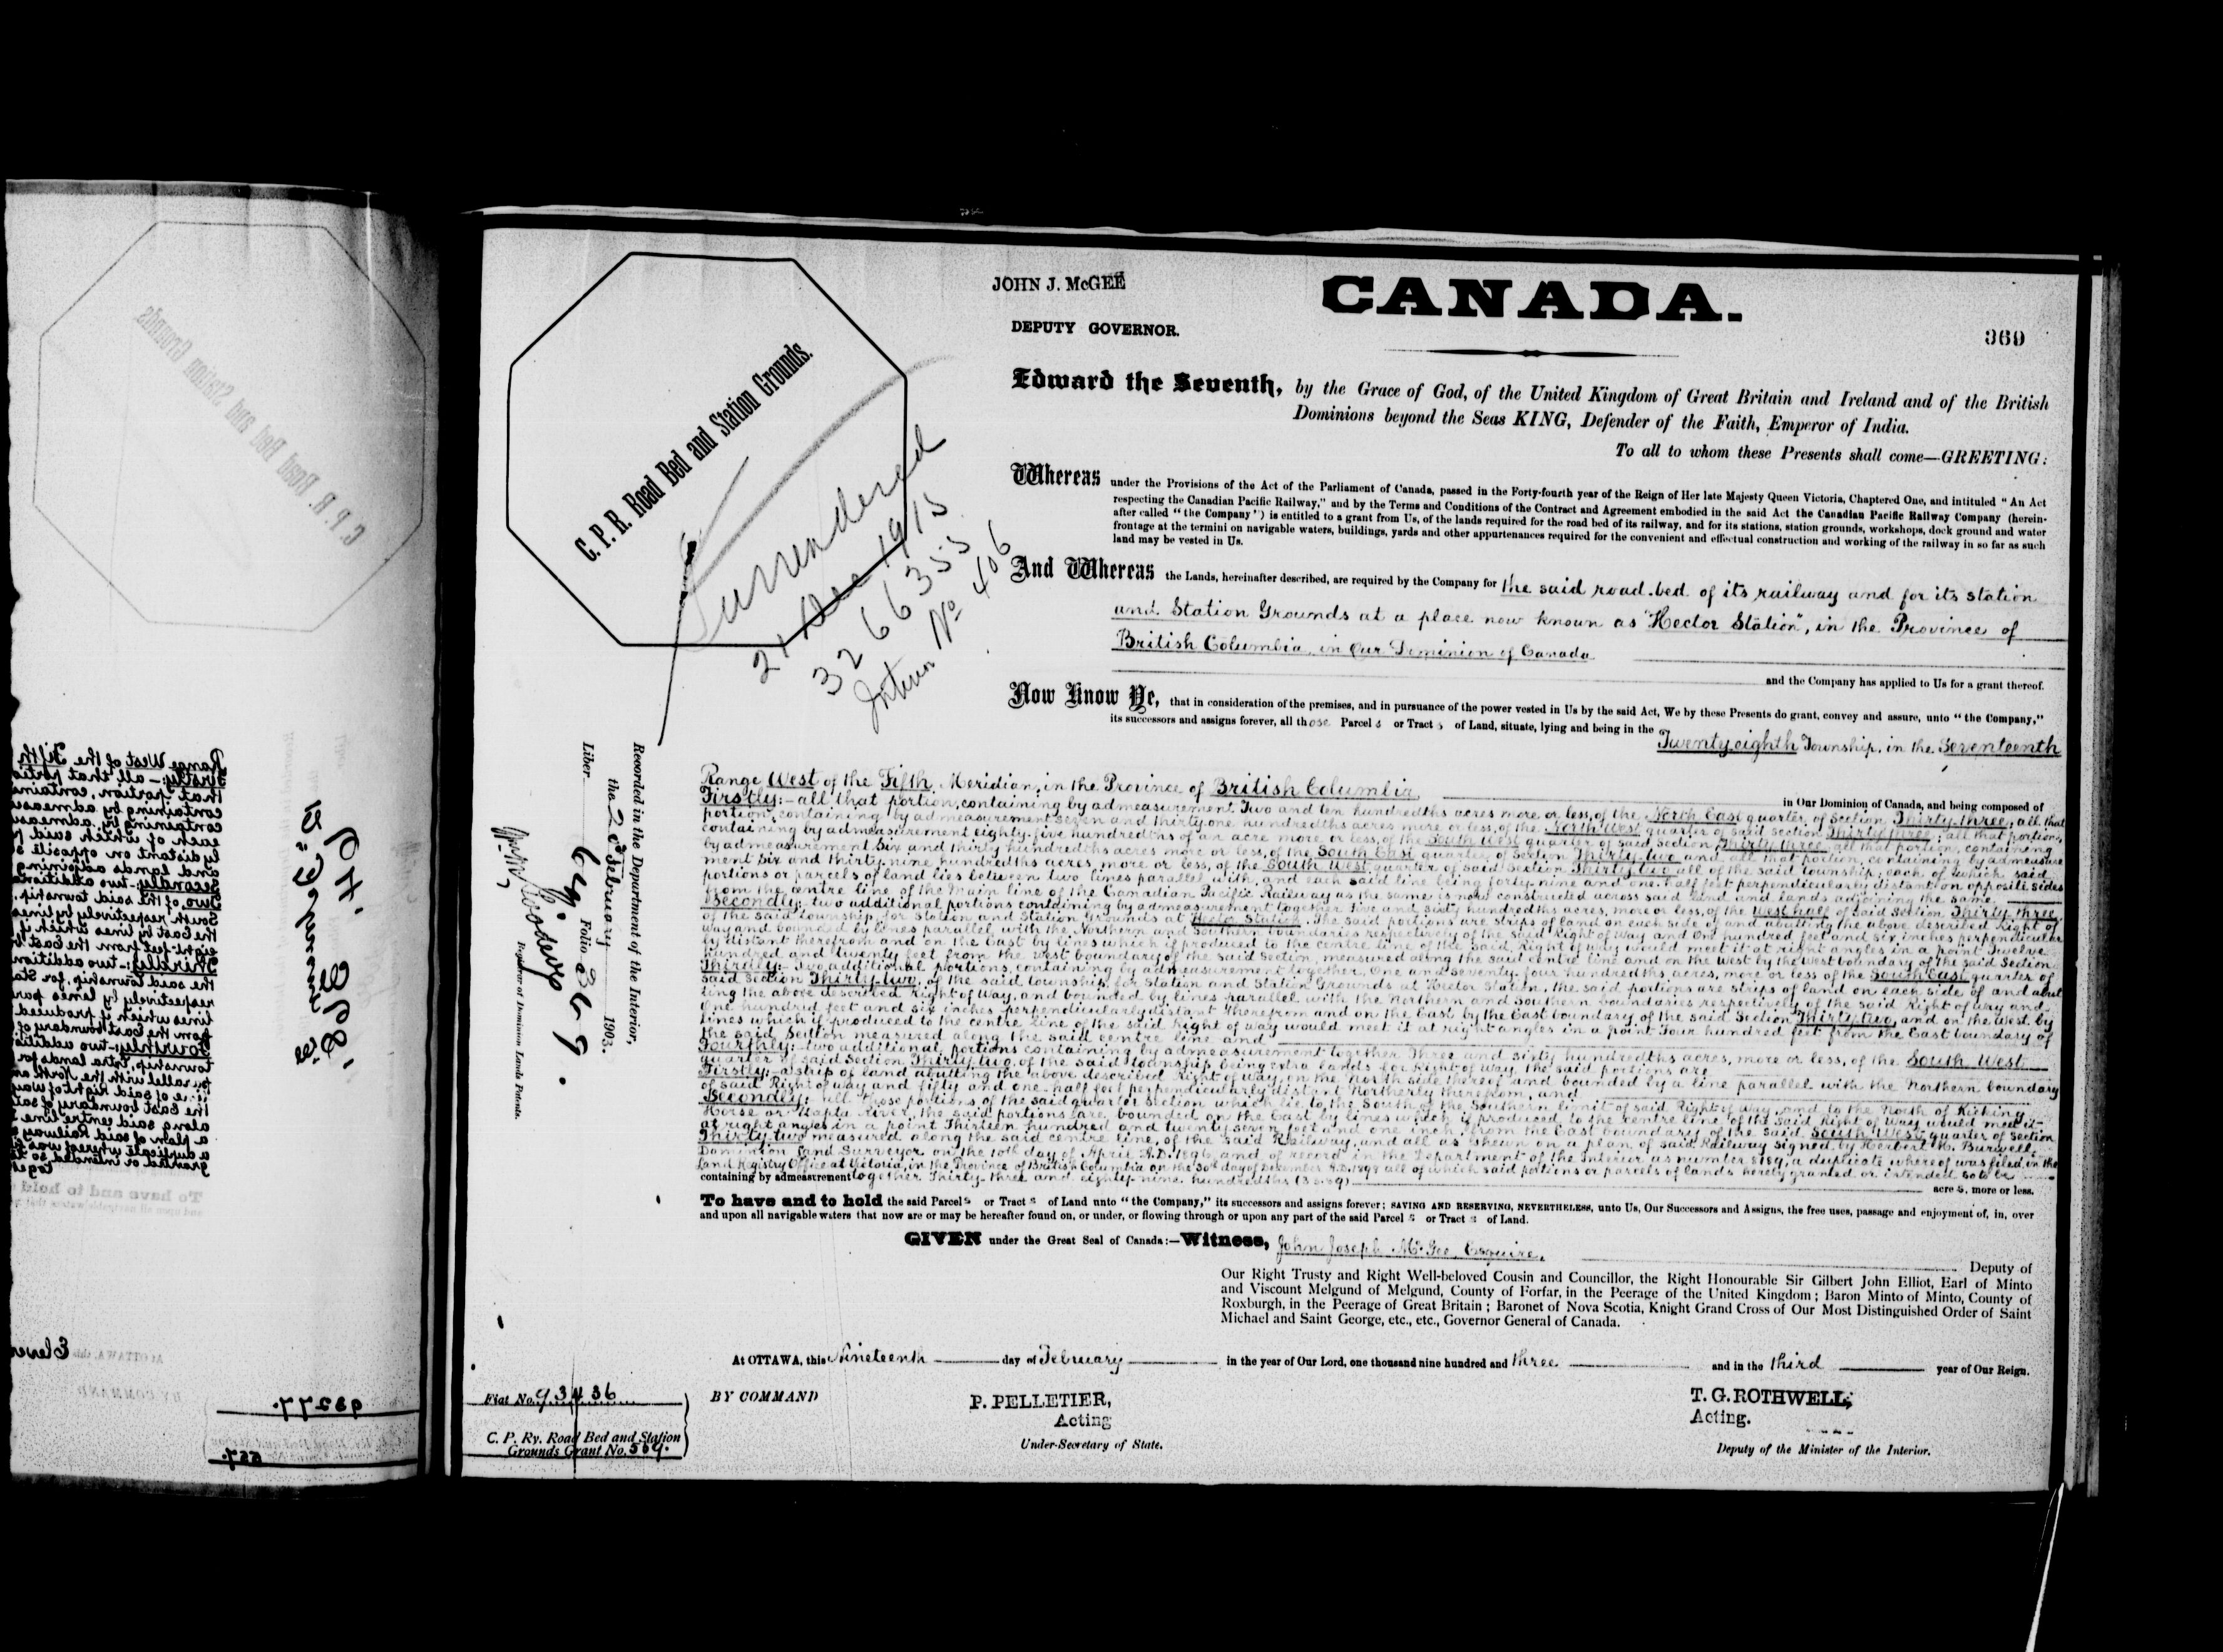 JOHN J. McGEE
DEPUTY GOVERNOR.
CANADA.
369
C. P. R. Road Bed and Station Grounds.
Surrendered
21 Dec 1915
3266355
No 406
Edward the Seventh, by the Grace of God, of the United Kingdom of Great Britain and Ireland and of the British
Dominions beyond the Seas KING, Defender of the Faith, Emperor of India.
To all to whom these Presents shall come—GREETING:
Whereas under the Provisions of the Act of the Parliament of Canada, passed in the Forty-fourth year of the Reign of Her late Majesty Queen Victoria, Chaptered One, and intituled "An Act
respecting the Canadian Pacific Railway," and by the Terms and Conditions of the Contract and Agreement embodied in the said Act the Canadian Pacific Railway Company (herein-
after called "the Company") is entitled to a grant from Us, of the lands required for the road bed of its railway, and for its stations, station grounds, workshops, dock ground and water
frontage at the termini on navigable waters, buildings, yards and other appurtenances required for the convenient and effectual construction and working of the railway in so far as such
land may be vested in Us.
And Whereas the Lands, hereinafter described, are required by the Company for the said road bed of its railway and for its station
and Station Grounds at a place now known as "Hector Station", in the Province of
British Columbia, in Our Dominion of Canada
and the Company has applied to Us for a grant thereof.
Now Know Ye, that in consideration of the premises, and in pursuance of the power vested in Us by the said Act, We by these Presents do grant, convey and assure, unto "the Company,"
its successors and assigns forever, all those Parcels or Tracts of Land, situate, lying and being in the
Twenty eighth Township, in the Seventeenth
Range West of the Fifth Meridian, in the Province of British Columbia
in Our Dominion of Canada, and being composed of
Firstly:- all that portion, containing by admeasurement Two and ten hundredths acres more or less, of the North East quarter, of Section Thirty three; all that
portion, containing by admeasurement Seven and thirty one hundredths acres more or less, of the North West quarter of said Section Thirty three; all that portion,
containing by admeasurement eighty-five hundredths of an acre more or less, of the South West quarter of said Section Thirty three; all that portion, containing
by admeasurement Six and thirty hundredths acres more or less, of the South East quarter of Section Thirty two and all that portion, containing by admeasure
ment Six and thirty nine hundredths acres, more or less, of the South West quarter of said Section Thirty two all of the said township; each of which said
portions or parcels of land lies between two lines parallel with, and each said line being forty-nine and one-half feet perpendicularly distant on opposite sides
from the centre line of the main line of the Canadian Pacific Railway as the same is now constructed across said land and lands adjoining the same.
Secondly: two additional portions containing by admeasurement together Five and sixty hundredths acres, more or less, of the West half of said Section Thirty three
of the said township, for Station and Station Grounds at Hector Station. The said portions are strips of land on each side of and abutting the above described Right of
way and bounded by lines parallel with the Northern and Southern boundaries respectively of the said Right of way and One hundred feet and six inches perpendicular
ly distant therefrom and on the East by lines which if produced to the centre line of the said Right of way would meet it at right angles in a point Twelve
hundred and twenty feet from the West boundary of the said Section, measured along the said centre line and on the West by the West boundary of the said Section.
Thirdly:- Two additional portions, containing by admeasurement together, One and seventy four hundredths acres, more or less of the South East quarter of
said Section Thirty-two, of the said township, for Station and Station Grounds at Hector Station, the said portions are strips of land on each side of and abut
ting the above described Right of Way, and bounded by lines parallel with the Northern and Southern boundaries respectively of the said Right of Way and
One hundred feet and six inches perpendicularly distant therefrom and on the East by the East boundary of the said Section Thirty two, and on the West by
lines which if produced to the centre line of the said Right of way would meet it at right angles in a point Four hundred feet from the East boundary of
the said Section measured along the said centre line and
Fourthly:- two additional portions containing by admeasurement together Three and sixty hundredths acres, more or less, of the South West
quarter of said Section Thirty two, of the said township being extra lands for Right of way, the said portions are
Firstly:- a strip of land abutting the above described Right of way, on the North side thereof and bounded by a line parallel with the Northern boundary
of said Right of way and fifty and one-half feet perpendicularly distant Northerly therefrom, and
Secondly: all those portions of the said quarter section which lie to the South of the Southern limit of said Right of way, and to the North of Kicking
Horse or Wapta River, the said portions are bounded on the East by lines which if produced to the centre line of the said Right of way would meet it
at right angles in a point Thirteen hundred and twenty seven feet and one inch from the East boundary of the said South West quarter of Section
Thirty two measured along the said centre line, of the said Railway, and all as shewn on a plan of said Railway signed by Herbert M. Burwell,
Dominion Land Surveyor on the 10th day of April A.D. 1896, and of record in the Department of the Interior as number 8189, a duplicate whereof was filed in the
Land Registry Office at Victoria, in the Province of British Columbia on the 30th day of December A.D. 1898 all of which said portions or parcels of lands hereby granted or intended so to be
containing by admeasurement together Thirty three and eighty-nine hundredths (33.89)
acres, more or less.
To have and to hold the said Parcels or Tracts of Land unto "the Company," its successors and assigns forever; SAVING AND RESERVING, NEVERTHELESS, unto Us, Our Successors and Assigns, the free uses, passage and enjoyment of, in, over
and upon all navigable waters that now are or may be hereafter found on, or under, or flowing through or upon any part of the said Parcels or Tracts of Land.
GIVEN under the Great Seal of Canada:—Witness, John Joseph McGee Esquire,
Deputy of
Our Right Trusty and Right Well-beloved Cousin and Councillor, the Right Honourable Sir Gilbert John Elliot, Earl of Minto
and Viscount Melgund of Melgund, County of Forfar, in the Peerage of the United Kingdom; Baron Minto of Minto, County of
Roxburgh, in the Peerage of Great Britain; Baronet of Nova Scotia, Knight Grand Cross of Our Most Distinguished Order of Saint
Michael and Saint George, etc., etc., Governor General of Canada.
At OTTAWA, this Nineteenth day of February in the year of Our Lord, one thousand nine hundred and three and in the third year of Our Reign.
BY COMMAND
P. PELLETIER,
Acting
Under-Secretary of State.
T. G. ROTHWELL,
Acting.
Deputy of the Minister of the Interior.
Recorded in the Department of the Interior,
the 2 February 1903.
Liber Folio 369
Registrar of Dominion Lands Patents.
Fiat No. 93436
C. P. Ry. Road Bed and Station
Grounds Grant No. 569.